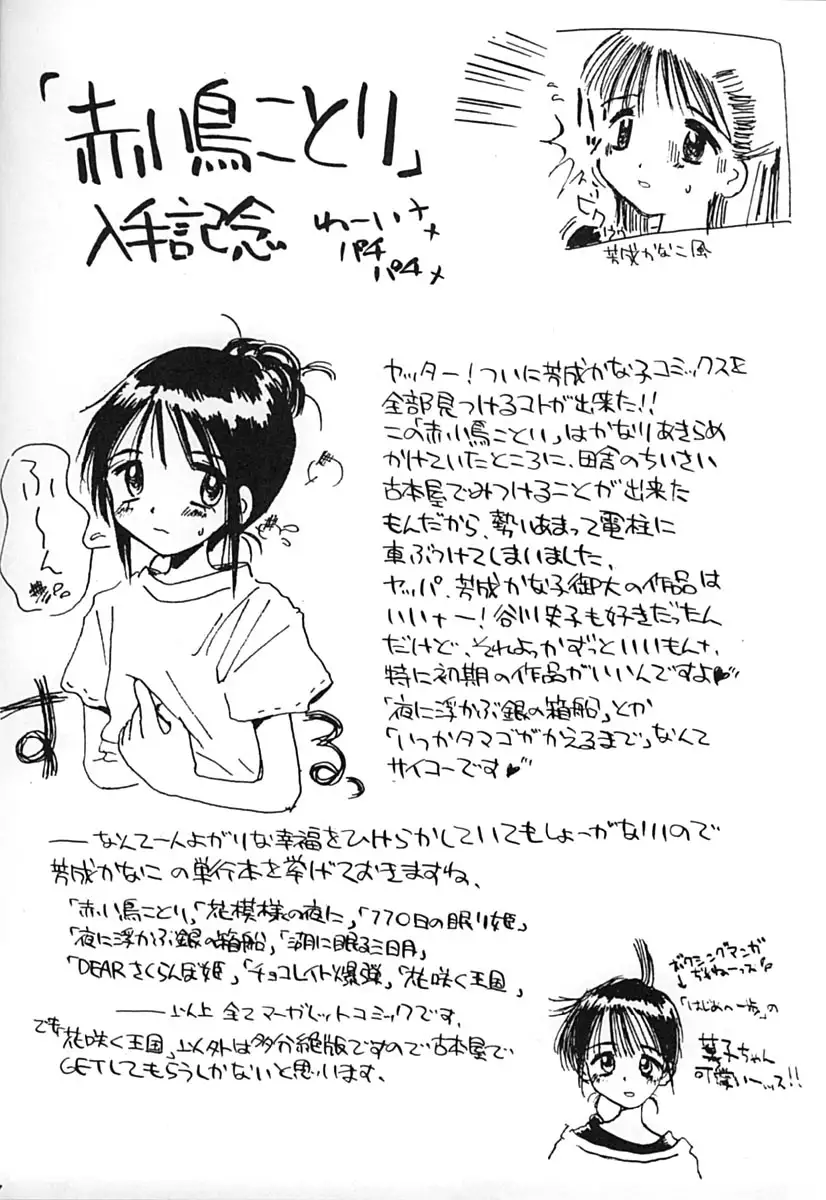 「赤い鳥ことり」
入手記念
わーい
パチ
パチ
芳成かなこ風
ヤッター!ついに芳成かな子コミックスを
全部見つけるコトが出来た!!
この「赤い鳥ことり」はかなりあきらめ
かけていたところに、田舎のちいさい
古本屋でみつけることが出来た
もんだから、勢いあまって電柱に
車ぶつけてしまいました、
ヤッパ、芳成かな子御大の作品は
いいナー!谷川史子も好きだったん
だけど、それよっかずっといいもんナ、
特に初期の作品がいいんですよ♥
「夜に浮かぶ銀の箱船」とか
「いつかタマゴがかえるまで」なんて
サイコーです♥
ふーん
する。
――なんて一人よがりな幸福をひけらかしていてもしょーがないので
芳成かなこの単行本を挙げておきますね、
「赤い鳥ことり」「花模様の夜に」「770日の眠り姫」
「夜に浮かぶ銀の箱船」「湖に眠る三日月」
「DEARさくらんぼ姫」「チョコレイト爆弾」「花咲く王国」
――以上全てマーガレットコミックです、
でも「花咲く王国」以外は多分絶版ですので古本屋で
GETしてもらうしかないと思います、
ボクシングマンガ
だねーっス
↓「はじめの一歩」の
菓子ちゃん
可愛いーッス!!